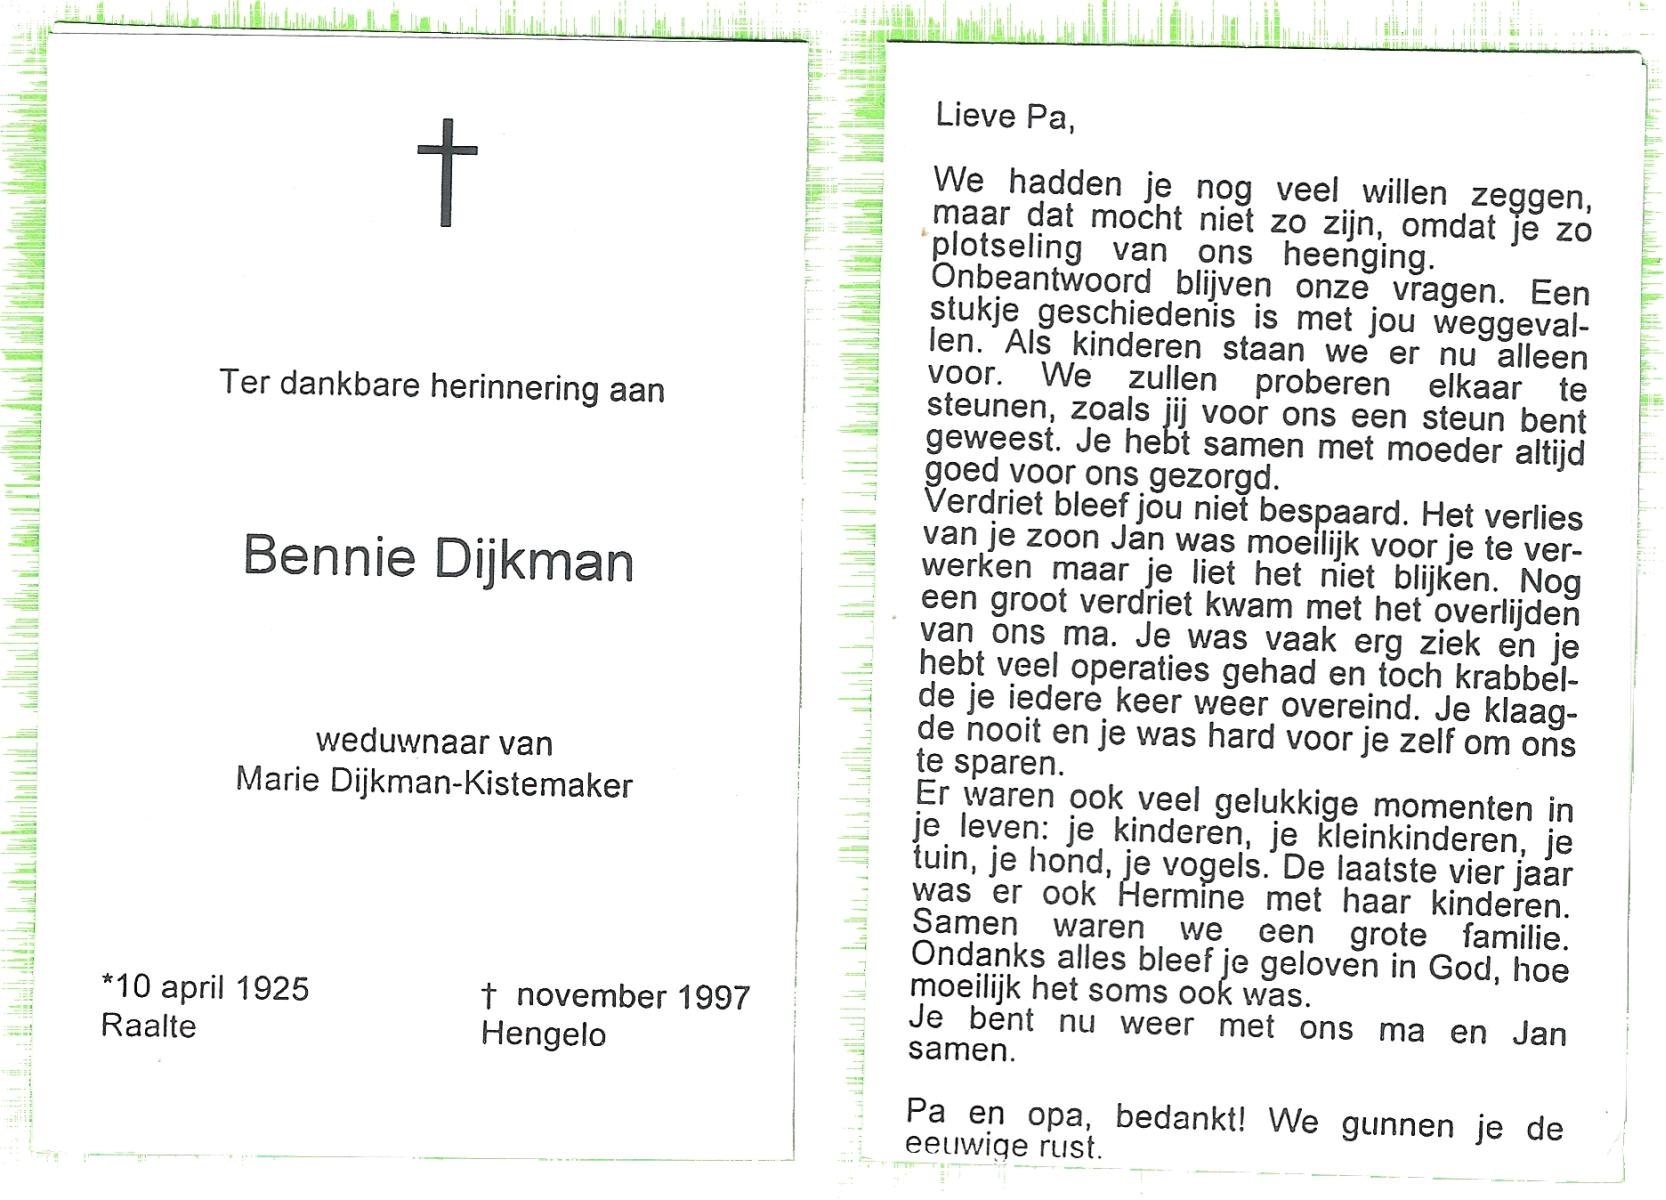 Ter dankbare herinnering aan
Bennie Dijkman
weduwnaar van
Marie Dijkman-Kistemaker
*10 april 1925
Raalte
† november 1997
Hengelo
Lieve Pa,
We hadden je nog veel willen zeggen,
maar dat mocht niet zo zijn, omdat je zo
plotseling van ons heenging.
Onbeantwoord blijven onze vragen. Een
stukje geschiedenis is met jou weggeval-
len. Als kinderen staan we er nu alleen
voor. We zullen proberen elkaar te
steunen, zoals jij voor ons een steun bent
geweest. Je hebt samen met moeder altijd
goed voor ons gezorgd.
Verdriet bleef jou niet bespaard. Het verlies
van je zoon Jan was moeilijk voor je te ver-
werken maar je liet het niet blijken. Nog
een groot verdriet kwam met het overlijden
van ons ma. Je was vaak erg ziek en je
hebt veel operaties gehad en toch krabbel-
de je iedere keer weer overeind. Je klaag-
de nooit en je was hard voor je zelf om ons
te sparen.
Er waren ook veel gelukkige momenten in
je leven: je kinderen, je kleinkinderen, je
tuin, je hond, je vogels. De laatste vier jaar
was er ook Hermine met haar kinderen.
Samen waren we een grote familie.
Ondanks alles bleef je geloven in God, hoe
moeilijk het soms ook was.
Je bent nu weer met ons ma en Jan
samen.
Pa en opa, bedankt! We gunnen je de
eeuwige rust.